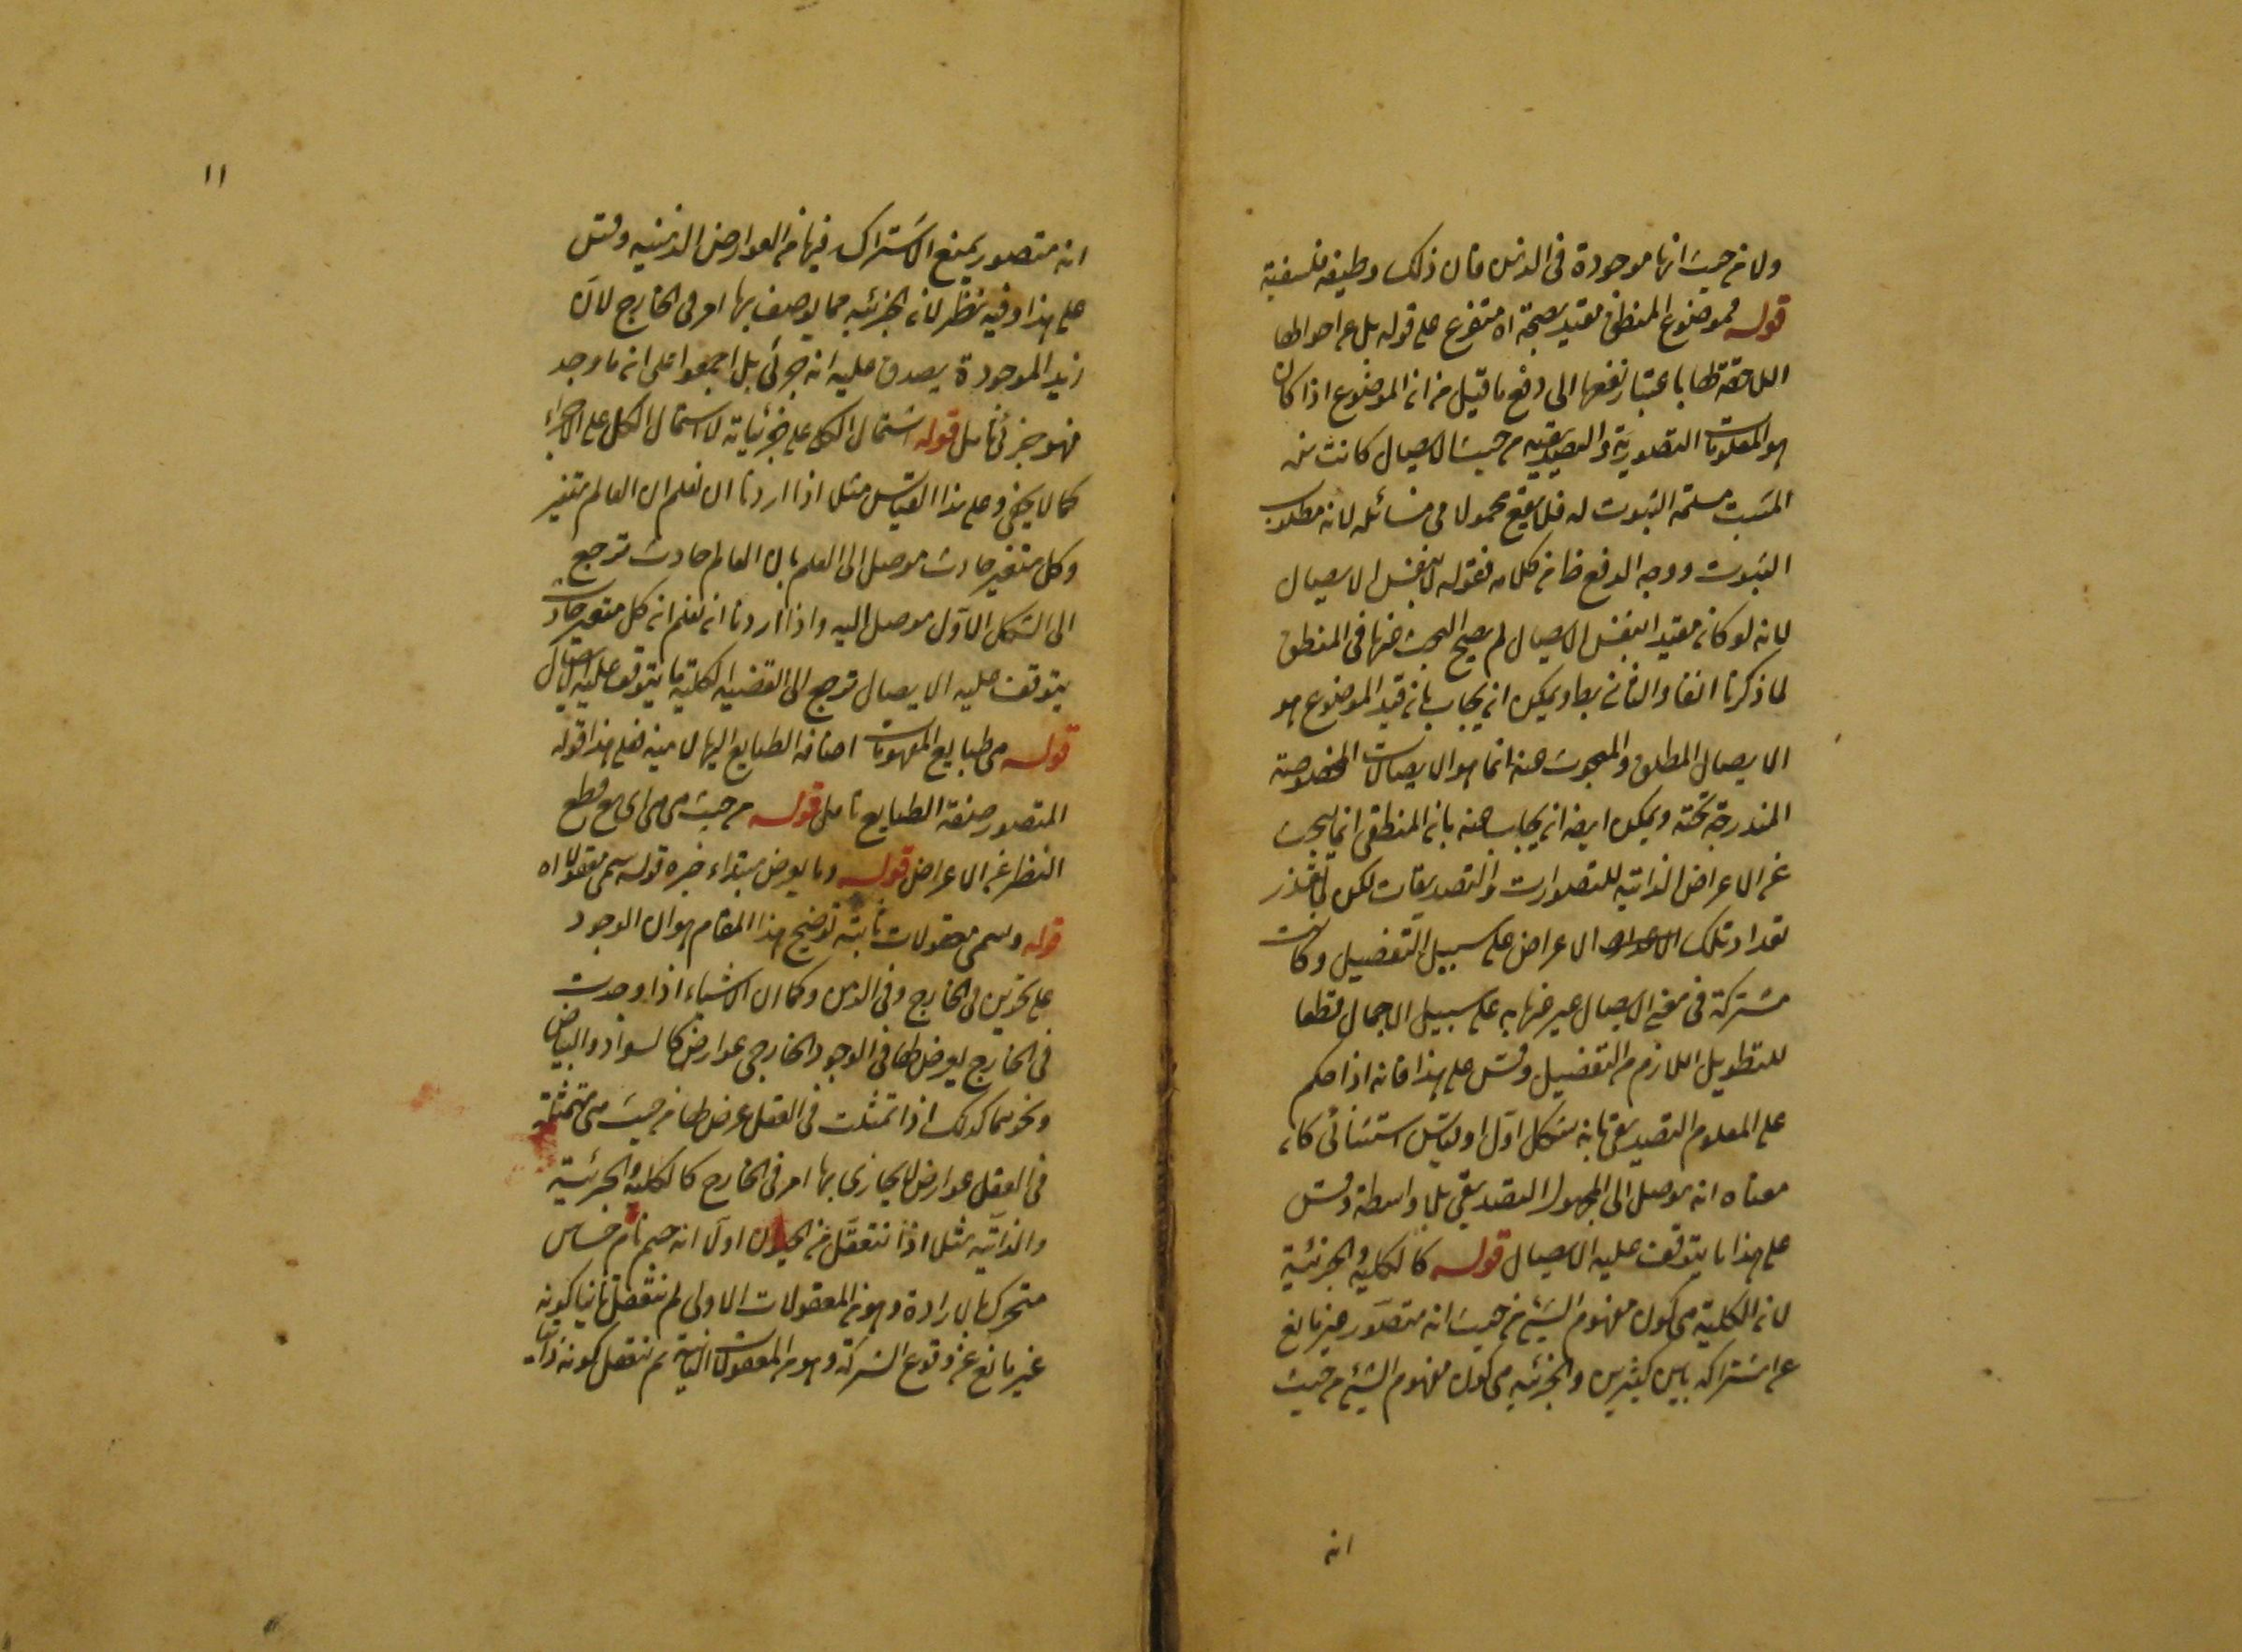 ولا من حيث انها موجودة فى الذهن فان ذلك وظيفة فلسفية
قوله فموضوع المنطق مقيد بصحة اه متفرع على قوله بل عن احوالها
اللاحقة لها باعتبار نفعها الى دفع ما قيل من ان الموضوع اذا كان
هو المعلومات التصورية والتصديقية من حيث الايصال كانت من
مسلمة الثبوت له فلا يقع محمولا فى مسائله لانه مطلوب
الثبوت ووجه الدفع ظ من كلامه فقوله لا بنفس الايصال
لانه لو كان مقيدا بنفس الايصال لم يصح البحث عنها فى المنطق
لما ذكرنا انفا والثانى بط ويمكن ان يجاب بان قيد الموضوع هو
الايصال المطلق والمبحوث عنه انما هو الايصالات المخصوصة
المندرجة تحته ويمكن ايضا ان يجاب عنه بان المنطقى انما يبحث
عن الاعراض الذاتية للتصورات والتصديقات لكن لما تعذر
تعداد تلك الاعراض على سبيل التفصيل وكانت
مشتركة فى معنى الايصال عبر عنها به على سبيل الاجمال قطعا
للتطويل اللازم من التفصيل وقس على هذا فانه اذا حكم
على المعلوم التصديقى بانه شكل اول او قياس استثنائى كان
معناه انه موصل الى المجهول التصديقى بلا واسطة وقس
على هذا ما يتوقف عليه الايصال قوله كالكلية والجزئية
لان الكلية هى كون مفهوم الشئ من حيث انه متصور غير مانع
عن اشتراكه بين كثيرين والجزئية هى كون مفهوم الشئ من حيث
انه
١١
انه متصور يمنع الاشتراك فيها من العوارض الذهنية وقس
على هذا وفيه نظر لان الجزئية مما يوصف بها امر فى الخارج لان
زيد الموجودة يصدق عليه انه جزئى بل اجمعوا على ان ما وجد
فهو جزئى تامل قوله اشتمال الكلى على جزئياته لا اشتمال الكل على الاجزاء
كما لا يخفى وعلى هذا القياس مثل اذا اردنا ان نعلم ان العالم متغير
وكل متغير حادث موصل الى العلم بان العالم حادث نرجع
الى الشكل الاول موصل اليه واذا اردنا ان نعلم ان كل متغير حادث
يتوقف عليه الايصال نرجع الى القضية الكلية ما يتوقف عليه الايصال
قوله هى طبايع المفهومات اضافة الطبايع اليها بيانية فعلى هذا قوله
المتصور صفة الطبايع تامل قوله من حيث هى هى اى مع قطع
النظر عن الاعراض قوله وما يعرض مبتداء خبره قوله سمى معقولا اه
قوله وسمى معقولات ثابتة توضيح هذا المقام هو ان الوجود
على نحوين فى الخارج وفى الذهن وكما ان الاشياء اذا وجدت
فى الخارج يعرض لها فى الوجود الخارجى عوارض كالسواد والبياض
ونحوهما كذلك اذا تمثلت فى العقل عرض لها من حيث هى متمثلة
فى العقل عوارض لا يحاذى بها امر فى الخارج كالكلية والجزئية
والذاتية مثل اذا نتعقل من الحيوان اولا انه جسم نام حساس
متحرك بالارادة وهو من المعقولات الاولى ثم نتعقل ثانيا كونه
غير مانع عن وقوع الشركة وهو من المعقولات الثانية ثم نتعقل كونه ذاتيا